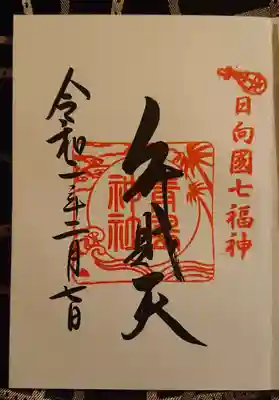 日向國七福神
弁財天
青島
神社
令和二年二月七日